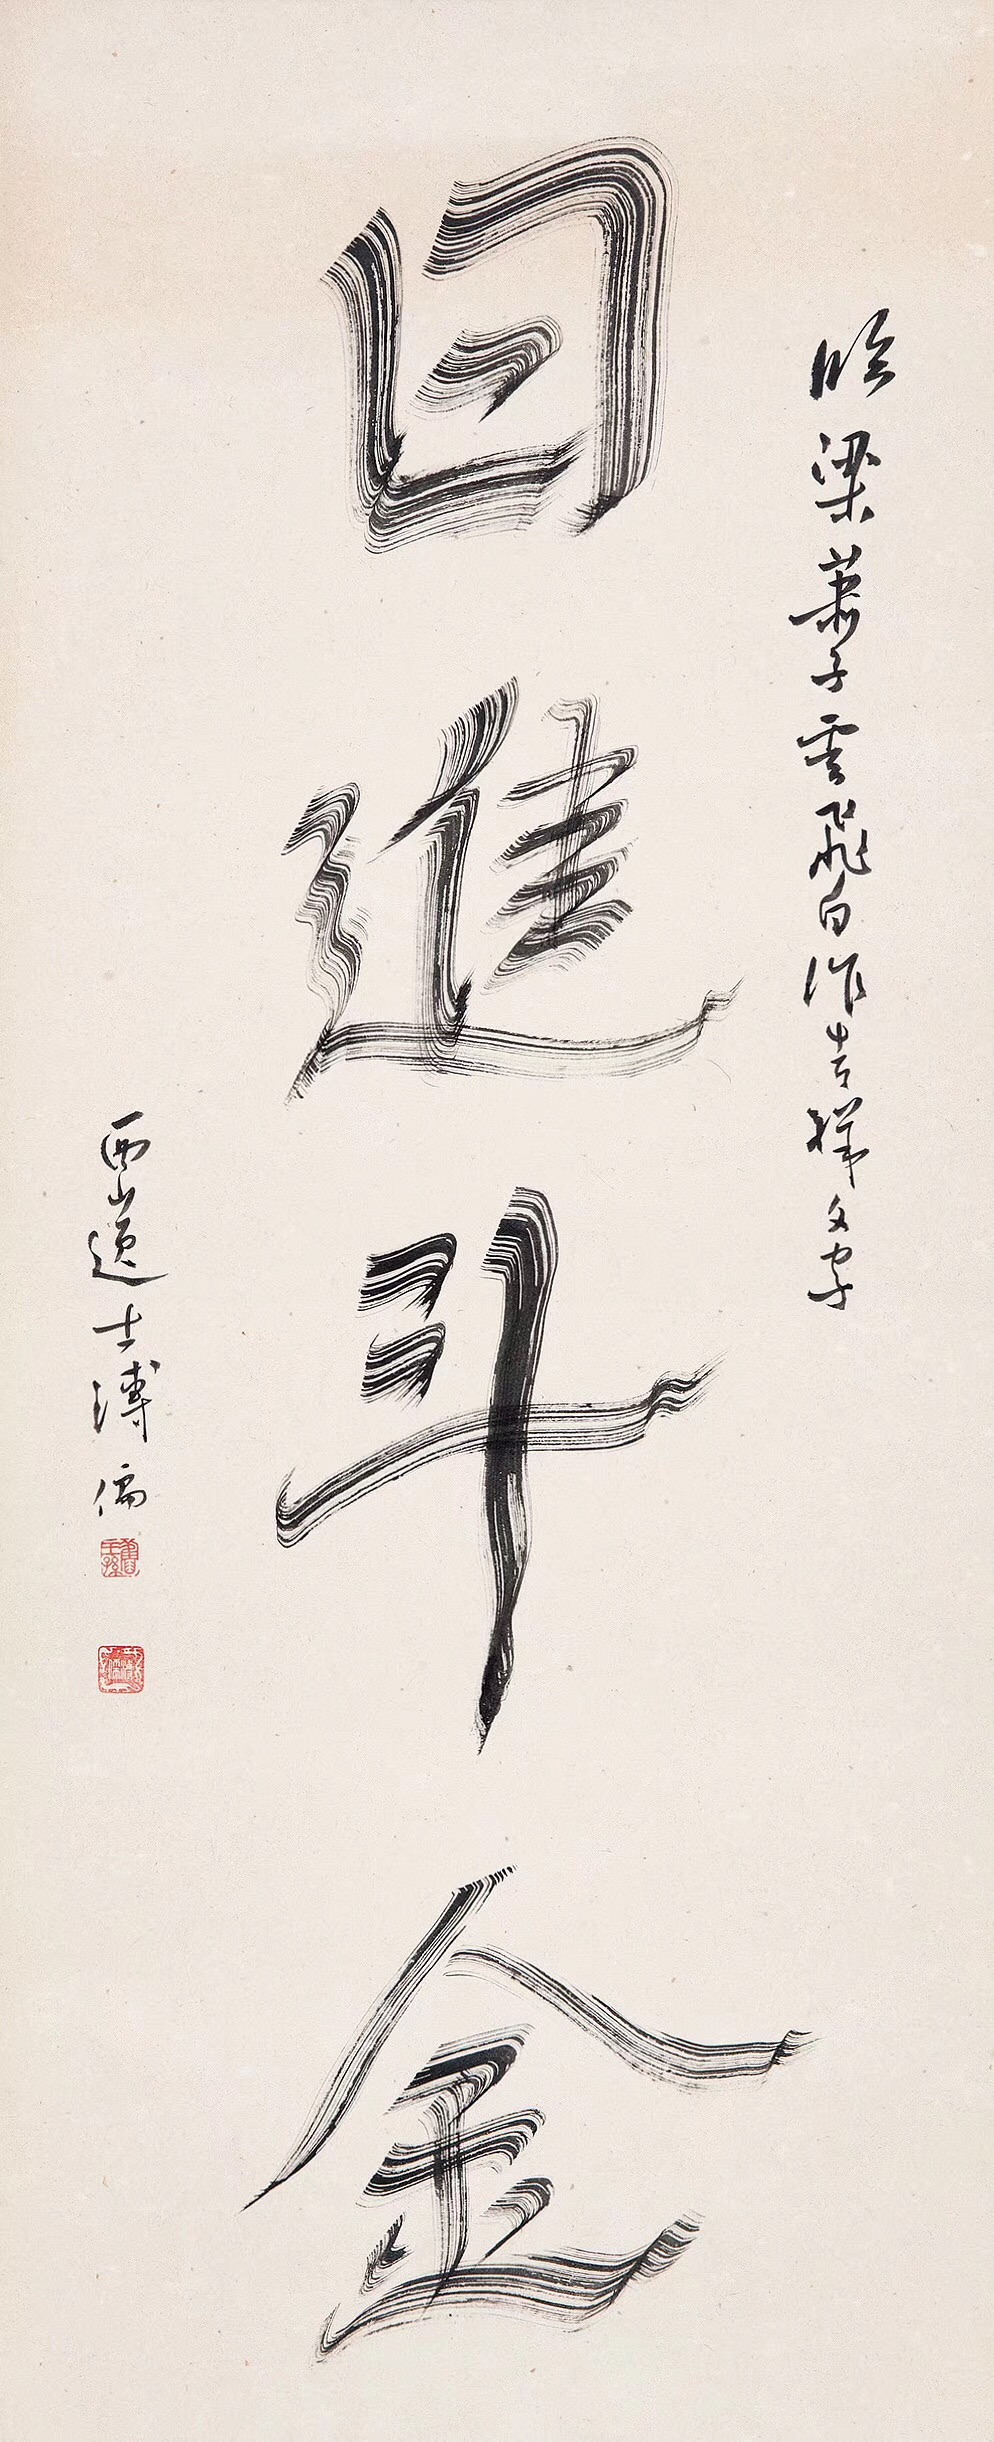 臨梁蕭子雲飛白作吉祥文字
日進斗金
西山逸士溥儒
舊王孫